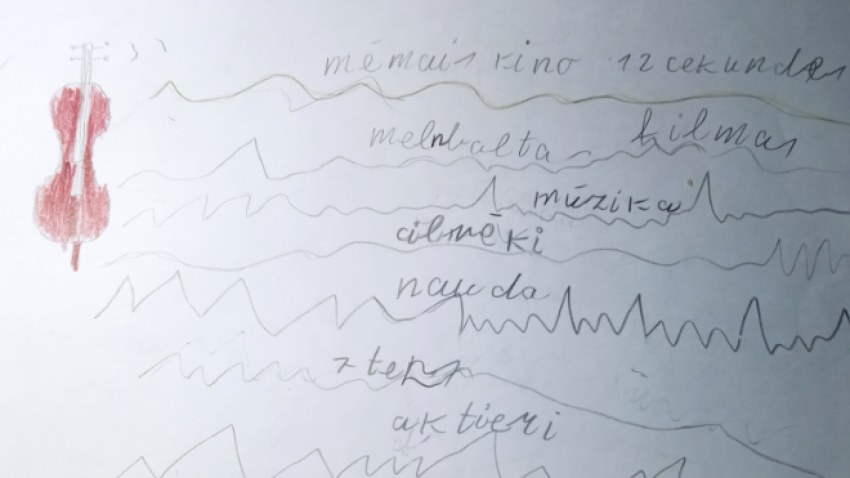 mēmais kino 12 cekundes
melnbalta filmas
mūzika
cilvēki
nauda
aktieri